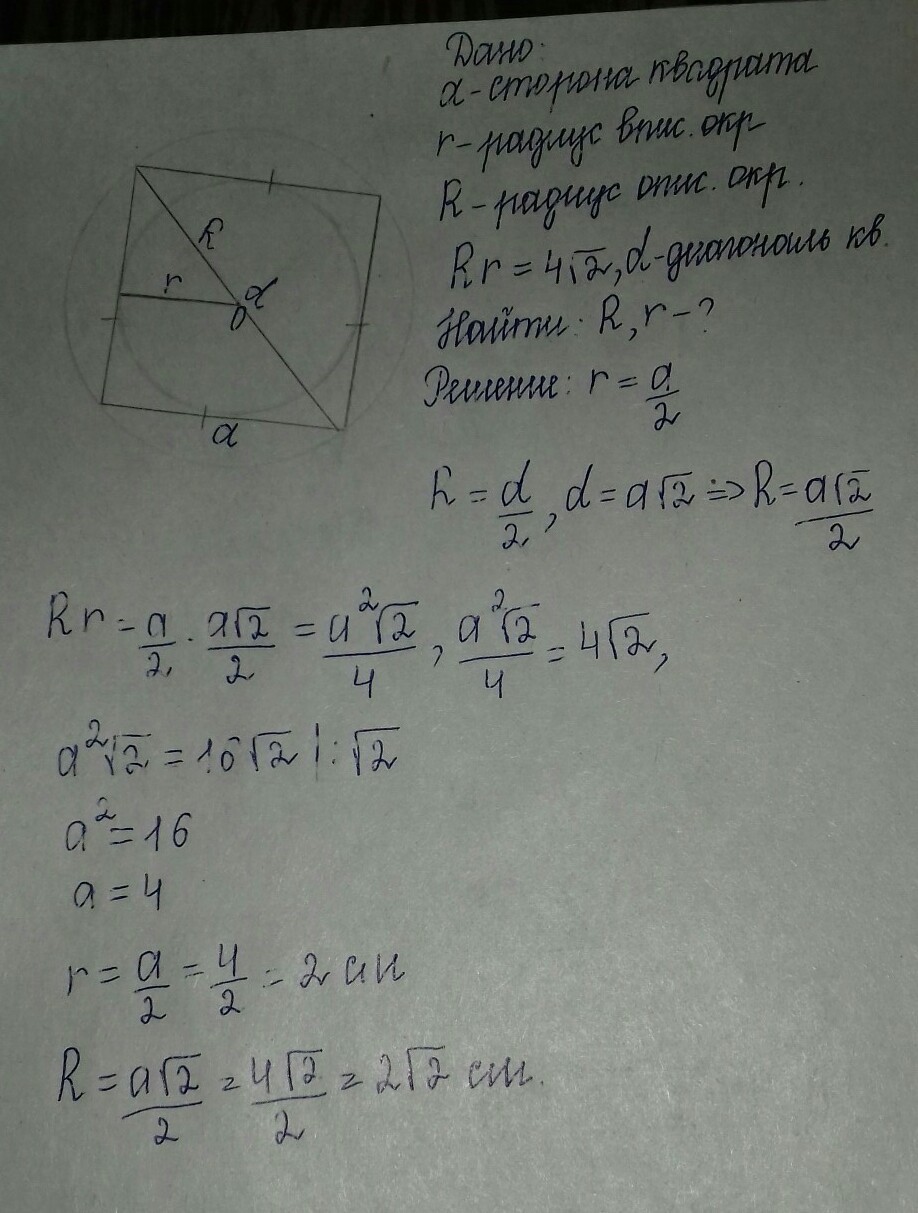 Дано:
a - сторона квадрата
r - радиус впис. окр
R - радиус опис. окр.
Rr = 4√2, d - диагональ кв.
Найти: R, r - ?
Решение: r = a/2
R = d/2, d = a√2 => R = a√2/2
R
r
d
O
a
Rr = a/2 · a√2/2 = a²√2/4, a²√2/4 = 4√2,
a²√2 = 16√2 | : √2
a² = 16
a = 4
r = a/2 = 4/2 = 2 см
R = a√2/2 = 4√2/2 = 2√2 см.